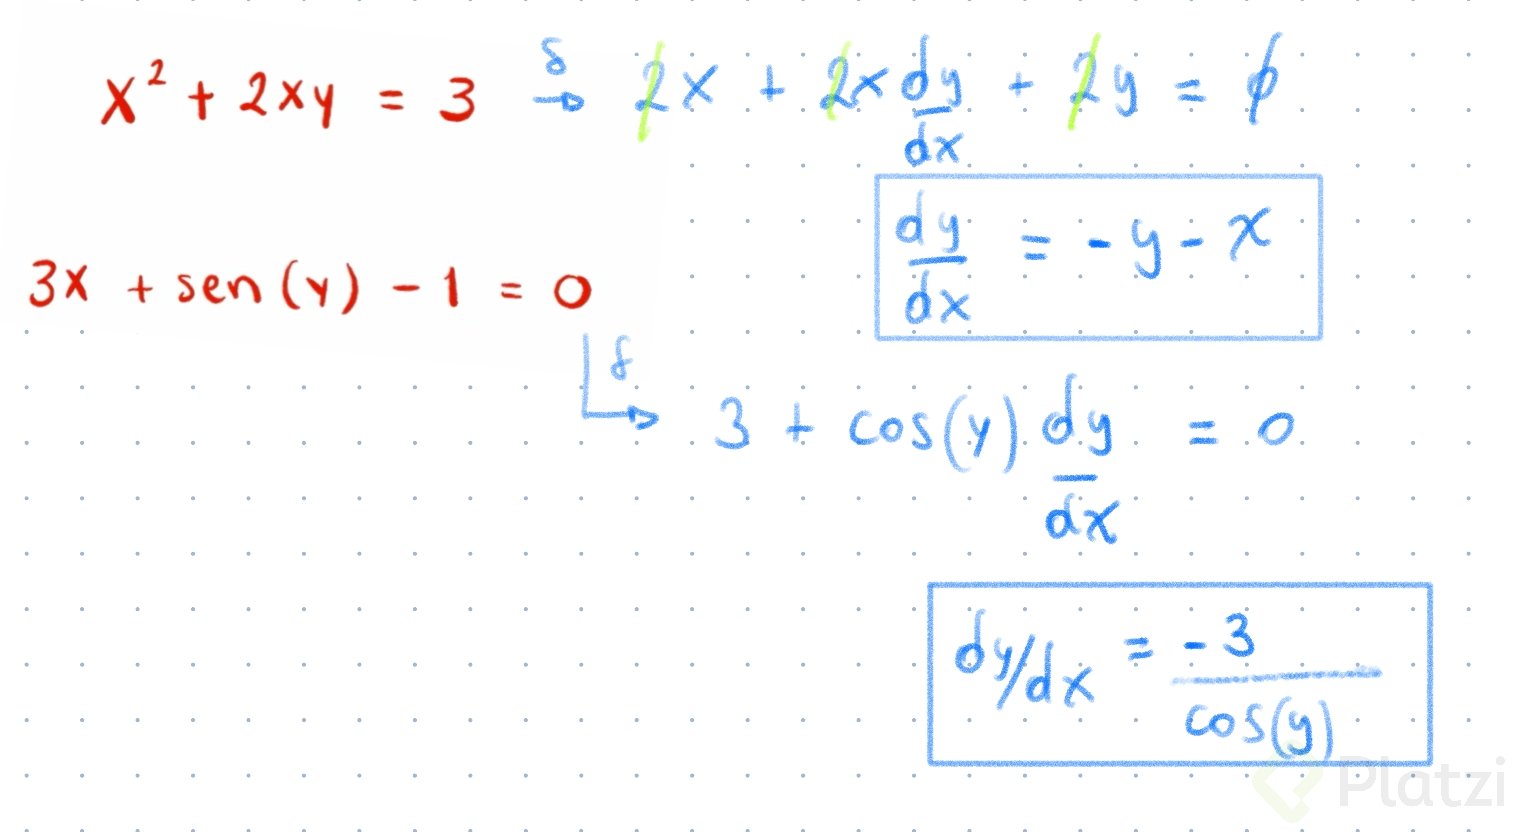 x² + 2xy = 3 δ→ 2x + 2x dy/dx + 2y = 0
dy/dx = - y - x
3x + sen(y) - 1 = 0
δ→ 3 + cos(y) dy/dx = 0
dy/dx = -3/cos(y)
Platzi